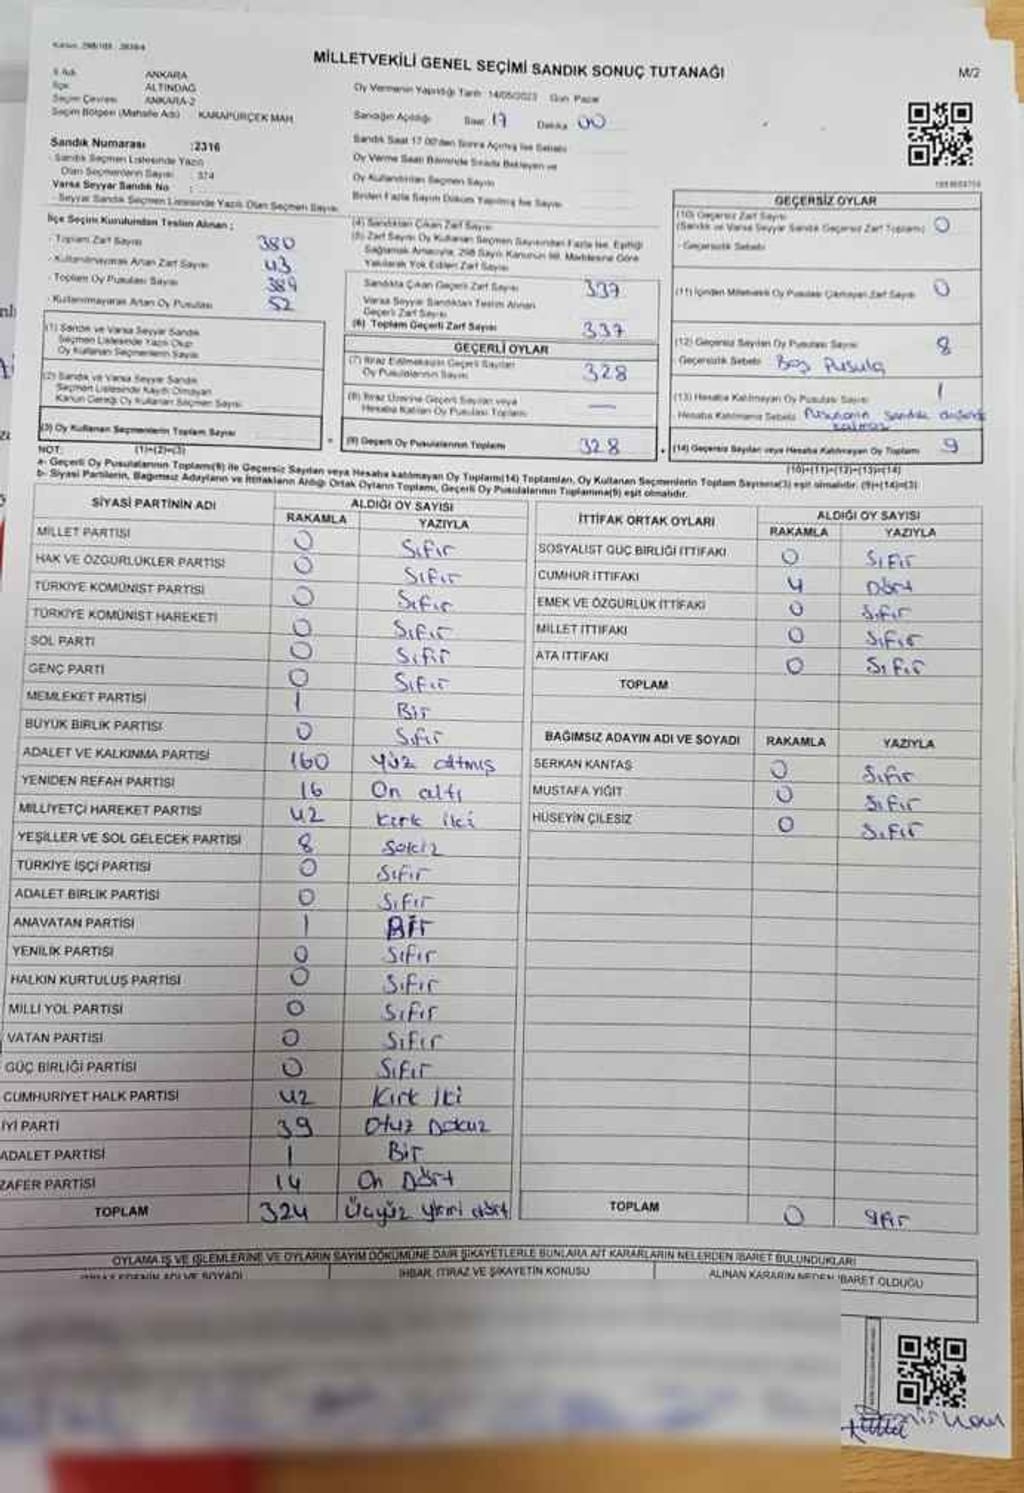 MİLLETVEKİLİ GENEL SEÇİMİ SANDIK SONUÇ TUTANAĞI
M/2
ANKARA
İlçe ALTINDAĞ
Seçim Çevresi ANKARA-2
Seçim Bölgesi (Mahalle Adı) KARAPÜRÇEK MAH.
Sandık Numarası :2316
Sandık Seçmen Listesinde Yazılı
Olan Seçmenlerin Sayısı : 374
Varsa Seyyar Sandık No :
Seyyar Sandık Seçmen Listesinde Yazılı Olan Seçmen Sayısı
Oy Vermenin Yapıldığı Tarih: 14/05/2023 Gün: Pazar
Sandığın Açıldığı Saat 17 Dakika 00
Sandık Saat 17.00'den Sonra Açılmış İse Sebebi
Oy Verme Saati Bitiminde Sırada Bekleyen ve
Oy Kullandırılan Seçmen Sayısı
Birden Fazla Sayım Döküm Yapılmış İse Sayısı
İlçe Seçim Kurulundan Teslim Alınan ;
- Toplam Zarf Sayısı 380
- Kullanılmayarak Artan Zarf Sayısı 43
- Toplam Oy Pusulası Sayısı 389
- Kullanılmayarak Artan Oy Pusulası 52
(1) Sandık ve Varsa Seyyar Sandık
Seçmen Listesinde Yazılı Olup
Oy Kullanan Seçmenlerin Sayısı
(2) Sandık ve Varsa Seyyar Sandık
Seçmen Listesinde Kayıtlı Olmayan
Kanun Gereği Oy Kullanan Seçmen Sayısı
(3) Oy Kullanan Seçmenlerin Toplam Sayısı
(1)+(2)=(3)
(4) Sandıktan Çıkan Zarf Sayısı
(5) Zarf Sayısı Oy Kullanan Seçmen Sayısından Fazla İse, Eşitliği
Sağlamak Amacıyla, 298 Sayılı Kanunun 98. Maddesine Göre
Yakılarak Yok Edilen Zarf Sayısı
Sandıkta Çıkan Geçerli Zarf Sayısı 337
Varsa Seyyar Sandıktan Teslim Alınan
Geçerli Zarf Sayısı
(6) Toplam Geçerli Zarf Sayısı 337
GEÇERLİ OYLAR
(7) İtiraz Edilmeksizin Geçerli Sayılan
Oy Pusulalarının Sayısı 328
(8) İtiraz Üzerine Geçerli Sayılan veya
Hesaba Katılan Oy Pusulası Toplamı —
(9) Geçerli Oy Pusulalarının Toplamı 328
GEÇERSİZ OYLAR
(10) Geçersiz Zarf Sayısı
(Sandık ve Varsa Seyyar Sandık Geçersiz Zarf Toplamı) 0
- Geçersizlik Sebebi
(11) İçinden Milletvekili Oy Pusulası Çıkmayan Zarf Sayısı 0
(12) Geçersiz Sayılan Oy Pusulası Sayısı 8
- Geçersizlik Sebebi Boş Pusula
(13) Hesaba Katılmayan Oy Pusulası Sayısı 1
Hesaba Katılmama Sebebi Pusulanın Sandık dışında
kalması
(14) Geçersiz Sayılan veya Hesaba Katılmayan Oy Toplamı 9
(10)+(11)+(12)+(13)=(14)
NOT:
a- Geçerli Oy Pusulalarının Toplamı(9) ile Geçersiz Sayılan veya Hesaba katılmayan Oy Toplamı(14) Toplamları, Oy Kullanan Seçmenlerin Toplam Sayısına(3) eşit olmalıdır. (9)+(14)=(3)
b- Siyasi Partilerin, Bağımsız Adayların ve İttifakların Aldığı Ortak Oyların Toplamı, Geçerli Oy Pusulalarının Toplamına(9) eşit olmalıdır.
SİYASİ PARTİNİN ADI ALDIĞI OY SAYISI
RAKAMLA YAZIYLA
MİLLET PARTİSİ 0 Sıfır
HAK VE ÖZGÜRLÜKLER PARTİSİ 0 Sıfır
TÜRKİYE KOMÜNİST PARTİSİ 0 Sıfır
TÜRKİYE KOMÜNİST HAREKETİ 0 Sıfır
SOL PARTİ 0 Sıfır
GENÇ PARTİ 0 Sıfır
MEMLEKET PARTİSİ 1 Bir
BÜYÜK BİRLİK PARTİSİ 0 Sıfır
ADALET VE KALKINMA PARTİSİ 160 Yüz atmış
YENİDEN REFAH PARTİSİ 16 On altı
MİLLİYETÇİ HAREKET PARTİSİ 42 kırk iki
YEŞİLLER VE SOL GELECEK PARTİSİ 8 Sekiz
TÜRKİYE İŞÇİ PARTİSİ 0 Sıfır
ADALET BİRLİK PARTİSİ 0 Sıfır
ANAVATAN PARTİSİ 1 Bir
YENİLİK PARTİSİ 0 Sıfır
HALKIN KURTULUŞ PARTİSİ 0 Sıfır
MİLLİ YOL PARTİSİ 0 Sıfır
VATAN PARTİSİ 0 Sıfır
GÜÇ BİRLİĞİ PARTİSİ 0 Sıfır
CUMHURİYET HALK PARTİSİ 42 Kırk iki
İYİ PARTİ 39 Otuz Dokuz
ADALET PARTİSİ 1 Bir
ZAFER PARTİSİ 14 On Dört
TOPLAM 324 Üçyüz yirmi dört
İTTİFAK ORTAK OYLARI ALDIĞI OY SAYISI
RAKAMLA YAZIYLA
SOSYALİST GÜÇ BİRLİĞİ İTTİFAKI 0 Sıfır
CUMHUR İTTİFAKI 4 Dört
EMEK VE ÖZGÜRLÜK İTTİFAKI 0 Sıfır
MİLLET İTTİFAKI 0 Sıfır
ATA İTTİFAKI 0 Sıfır
TOPLAM
BAĞIMSIZ ADAYIN ADI VE SOYADI RAKAMLA YAZIYLA
SERKAN KANTAŞ 0 Sıfır
MUSTAFA YİĞİT 0 Sıfır
HÜSEYİN ÇİLESİZ 0 Sıfır
TOPLAM 0
OYLAMA İŞ VE İŞLEMLERİNE VE OYLARIN SAYIM DÖKÜMÜNE DAİR ŞİKAYETLERLE BUNLARA AİT KARARLARIN NELERDEN İBARET BULUNDUKLARI
İTİRAZ EDENİN ADI VE SOYADI İHBAR, İTİRAZ VE ŞİKAYETİN KONUSU ALINAN KARARIN NEDEN İBARET OLDUĞU